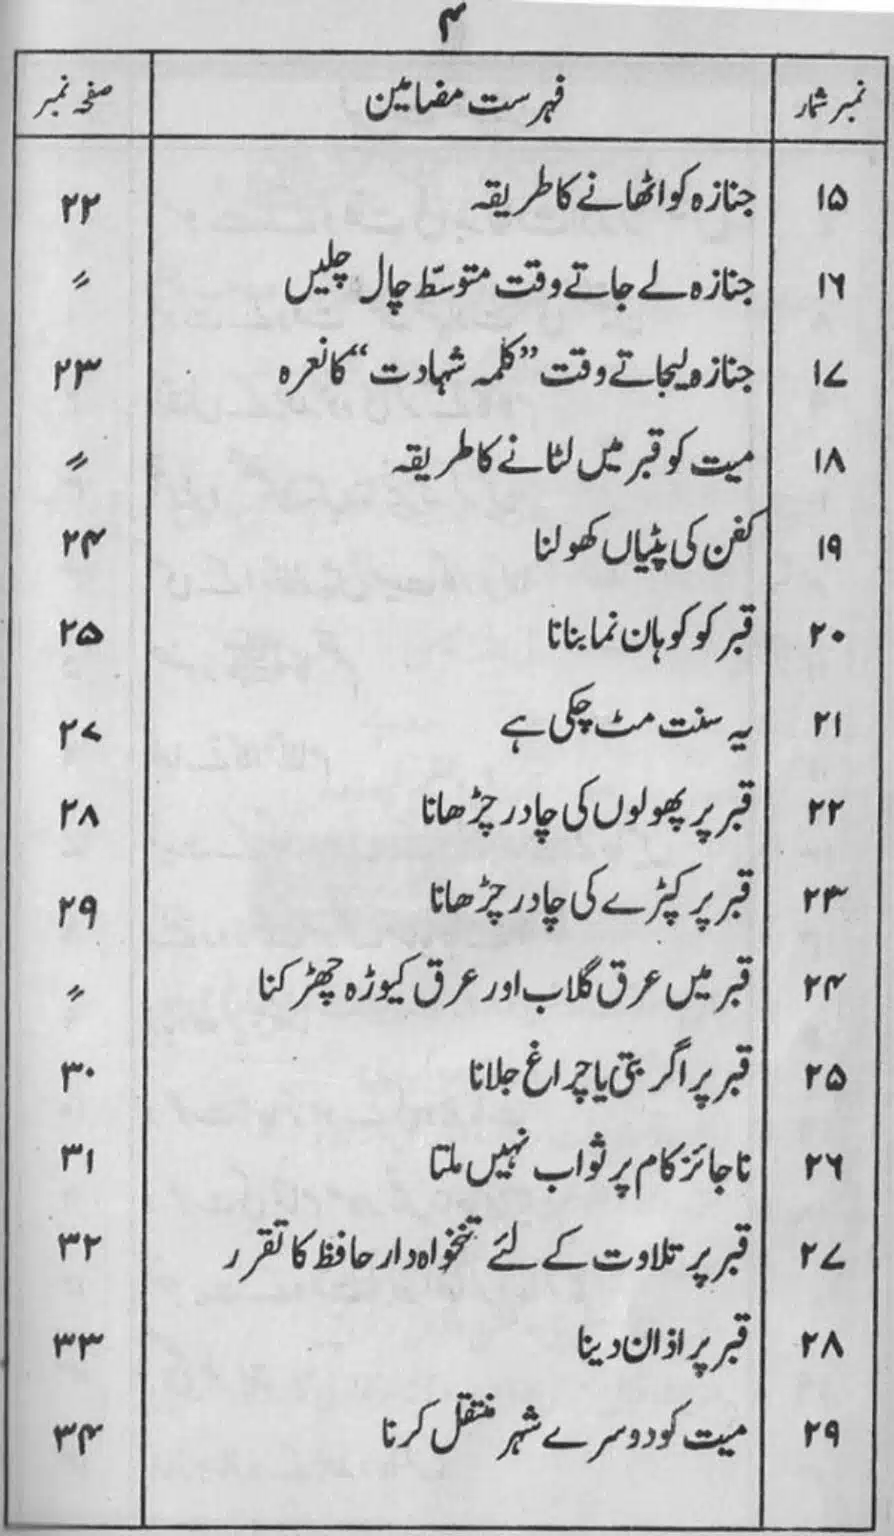 ۴
نمبر شمار فہرست مضامین صفحہ نمبر
۱۵ جنازہ کو اٹھانے کا طریقہ ۲۲
۱۶ جنازہ لے جاتے وقت متوسّط چال چلیں 〃
۱۷ جنازہ لیجاتے وقت ”کلمہ شہادت“ کا نعرہ ۲۳
۱۸ میت کو قبر میں لٹانے کا طریقہ 〃
۱۹ کفن کی پٹیاں کھولنا ۲۴
۲۰ قبر کو کوہان نما بنانا ۲۵
۲۱ یہ سنت مٹ چکی ہے ۲۷
۲۲ قبر پر پھولوں کی چادر چڑھانا ۲۸
۲۳ قبر پر کپڑے کی چادر چڑھانا ۲۹
۲۴ قبر میں عرق گلاب اور عرق کیوڑہ چھڑکنا 〃
۲۵ قبر پر اگر بتی یا چراغ جلانا ۳۰
۲۶ ناجائز کام پر ثواب نہیں ملتا ۳۱
۲۷ قبر پر تلاوت کے لئے تنخواہ دار حافظ کا تقرر ۳۲
۲۸ قبر پر اذان دینا ۳۳
۲۹ میت کو دوسرے شہر منتقل کرنا ۳۴